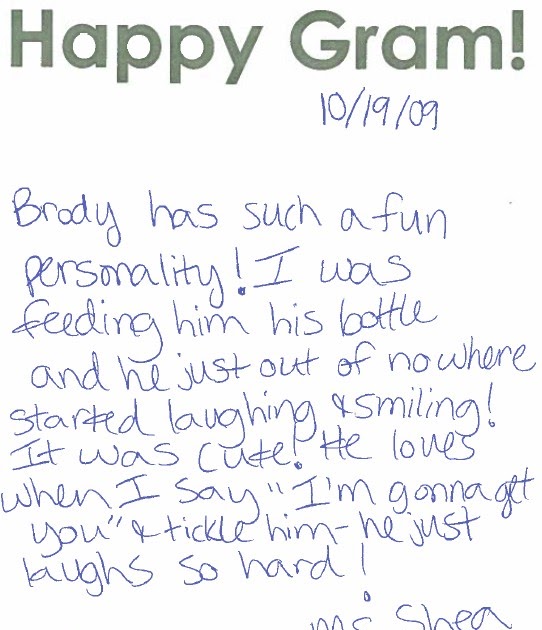 Happy Gram!
10/19/09
Brody has such a fun
personality! I was
feeding him his bottle
and he just out of nowhere
started laughing & smiling!
It was cute! He loves
when I say "I'm gonna get
you" & tickle him - he just
laughs so hard!
ms Shea